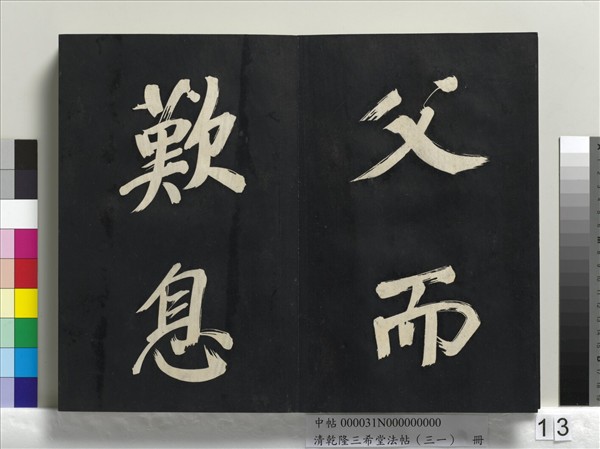 父而
歎息
中帖 000031N000000000
清乾隆三希堂法帖（三一） 冊
13